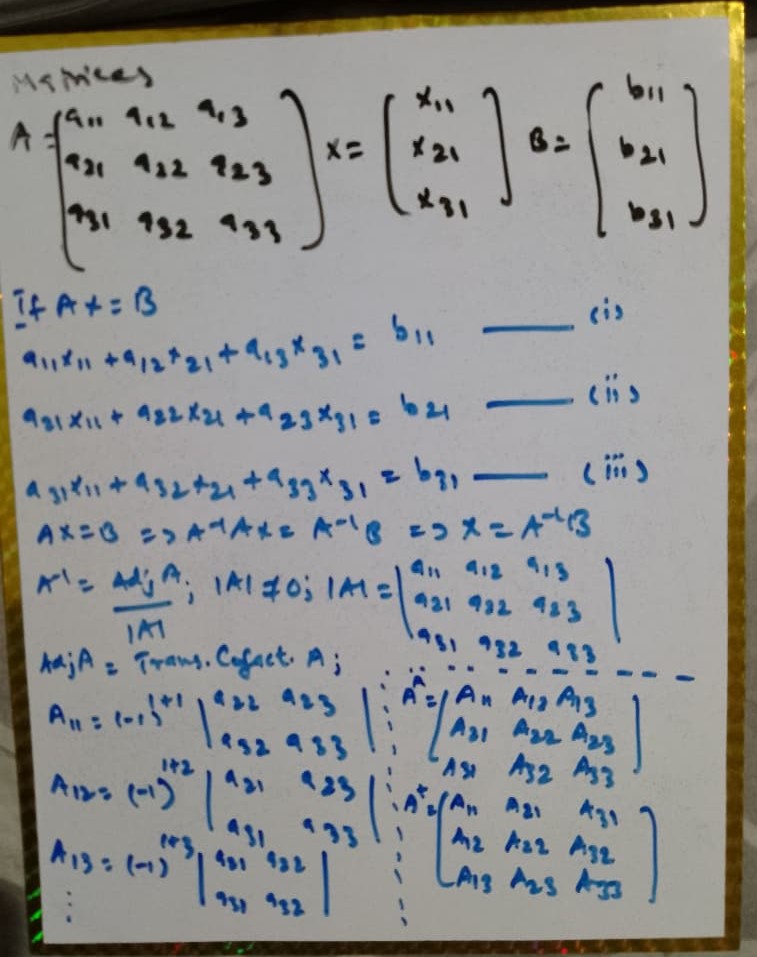 Matrices
A = [a11 a12 a13
a21 a22 a23
a31 a32 a33] X = [x11
x21
x31] B = [b11
b21
b31]
If AX = B
a11x11 + a12x21 + a13x31 = b11 —— (i)
a21x11 + a22x21 + a23x31 = b21 —— (ii)
a31x11 + a32x21 + a33x31 = b31 —— (iii)
AX=B => A^-1AX = A^-1B => X = A^-1B
A^-1 = Adj A / |A|; |A| ≠ 0; |A| = |a11 a12 a13
a21 a22 a23
a31 a32 a33|
AdjA = Trans. Cofact. A;
A11 = (-1)^1+1 |a22 a23
a32 a33|
A12 = (-1)^1+2 |a21 a23
a31 a33|
A13 = (-1)^1+3 |a21 a22
a31 a32|
⋮
A^A = [A11 A12 A13
A21 A22 A23
A31 A32 A33]
A^t = [A11 A21 A31
A12 A22 A32
A13 A23 A33]